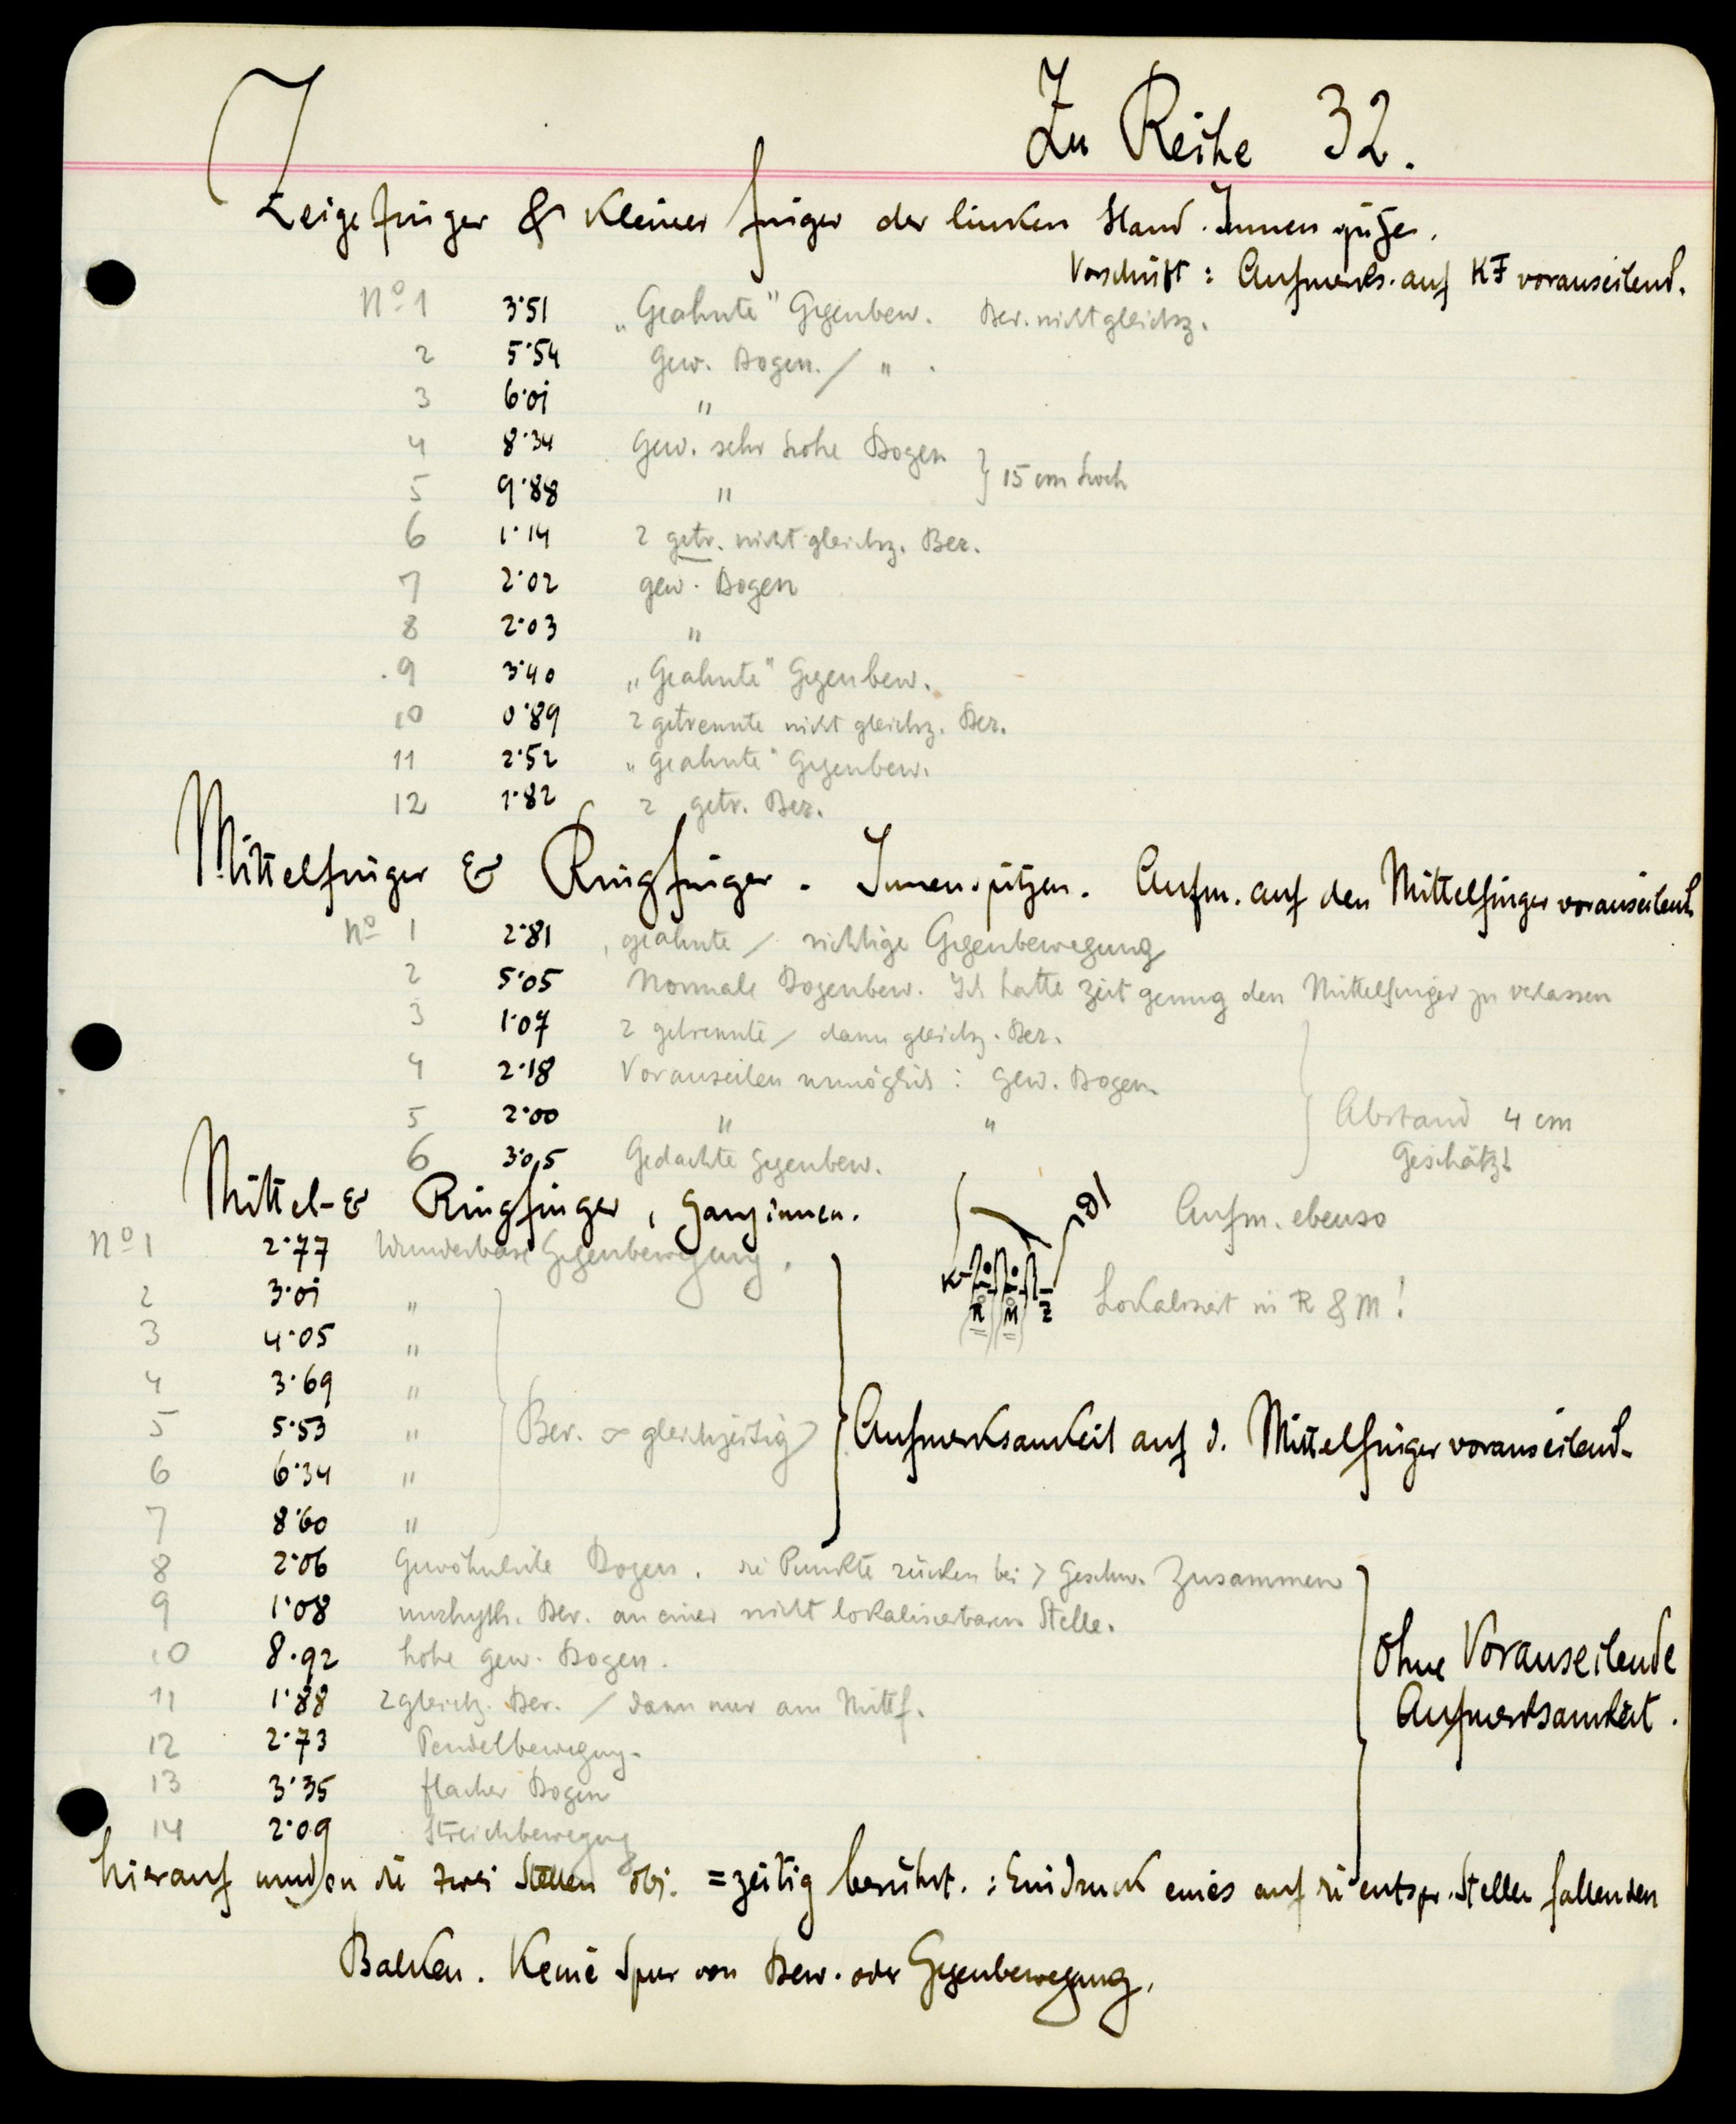 Zu Reihe 32.
Zeigefinger & kleiner Finger der linken Hand. Innenspitze.
Vorschrift: Aufmerks. auf KF vorauseilend.
No 1 3·51 „Geahnte" Gegenbew. Ber. nicht gleichz.
2 5·54 Gew. Bogen. / " .
3 6·01 "
4 8·34 Gew. sehr hohe Bogen } 15 cm hoch
5 9·88 "
6 1·14 2 getr. nicht gleichz. Ber.
7 2·02 gew. Bogen
8 2·03 "
9 3·40 „Geahnte" Gegenbew.
10 0·89 2 getrennte nicht gleichz. Ber.
11 2·52 „geahnte" Gegenbew.
12 1·82 2 getr. Ber.
Mittelfinger & Ringfinger. Innenspitzen. Aufm. auf den Mittelfinger vorauseilend
No 1 2·81 geahnte / richtige Gegenbewegung
2 5·05 Normale Bogenbew. Ich hatte Zeit genug den Mittelfinger zu verlassen
3 1·07 2 getrennte / dann gleichz. Ber.
4 2·18 Vorauseilen unmöglich: gew. Bogen
5 2·00 " " } Abstand 4 cm
6 3·05 Gedachte Gegenbew. Geschätzt
Mittel- & Ringfinger, ganz innen. Aufm. ebenso
No 1 2·77 Wunderbare Gegenbewegung.
2 3·01 " K R M Z Lokalisiert in R & M!
3 4·05 "
4 3·69 "
5 5·53 " Ber. ∞ gleichzeitig } Aufmerksamkeit auf d. Mittelfinger vorauseilend.
6 6·34 "
7 8·60 "
8 2·06 Gewöhnliche Bogen. die Punkte rücken bei > Geschw. Zusammen
9 1·08 unrhyth. Ber. an einer nicht lokalisierbaren Stelle.
10 8·92 hohe gew. Bogen.
ohne Vorauseilende
11 1·88 2 gleichz. Ber. / dann nur am Mittf.
Aufmerksamkeit.
12 2·73 Pendelbewegung.
13 3·35 flacher Bogen
14 2·09 Streichbewegung
hierauf wurden die zwei Stellen obj. =zeitig berührt. : Eindruck eines auf die entspr. Stellen fallenden
Balken. Keine Spur von Bew. oder Gegenbewegung.